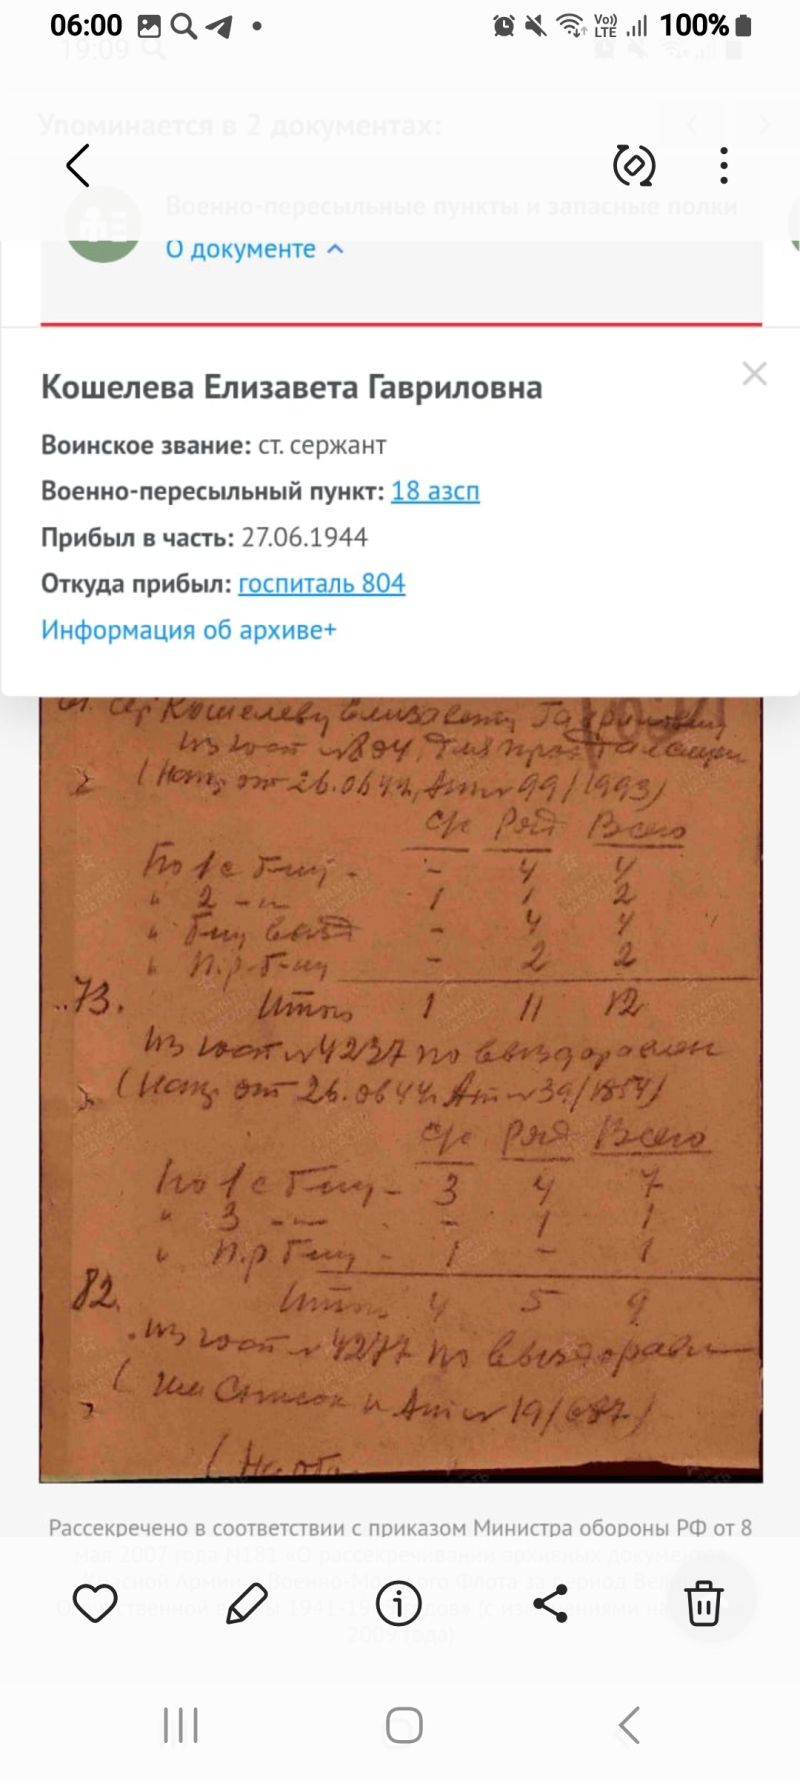 06:00
Vo)) LTE
100%
19:09
Упоминается в 2 документах:
Военно-пересыльные пункты и запасные полки
О документе
Кошелева Елизавета Гавриловна
Воинское звание: ст. сержант
Военно-пересыльный пункт: 18 азсп
Прибыл в часть: 27.06.1944
Откуда прибыл: госпиталь 804
Информация об архиве+
Кошелеву Елизавету Гавриловну
из госп №804
от 26.06.44 99/1993)
с/с Ряд Всего
По 1 с - 4 4
" 2 -"- 1 1 2
" - 4 4
" п.р. - 2 2
73.
Итого 1 11 12
Из госп №4237 по выздоровлен
от 26.06.44г 39/1854)
с/с Ряд Всего
По 1 с - 3 4 7
" 3 -"- - 1 1
" п.р - 1 - 1
82.
Итого 4 5 9
Из госп №4277 по
( Им Список и 19/687)
Рассекречено в соответствии с приказом Министра обороны РФ от 8
мая 2007 года N181 «О рассекречивании архивных документов
Красной Армии и Военно-Морского Флота за период Великой
Отечественной войны 1941-1945 годов» (с изменениями на
2009 года)